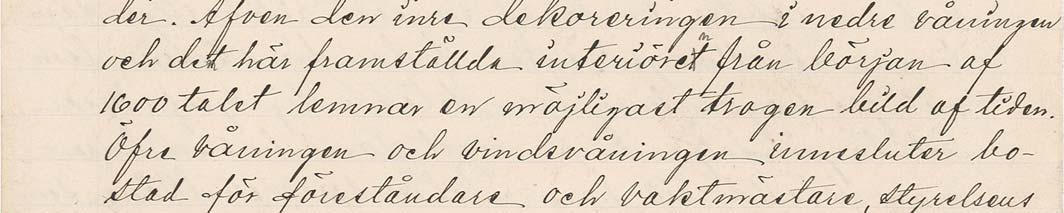 der. Äfven den inre dekoreringen i nedre våningen
och det här framställda interiöret från början af
1600 talet lemnar en möjligast trogen bild af tiden.
Öfre våningen och vindsvåningen innesluter bo-
stad för föreståndare och vaktmästare, styrelsens